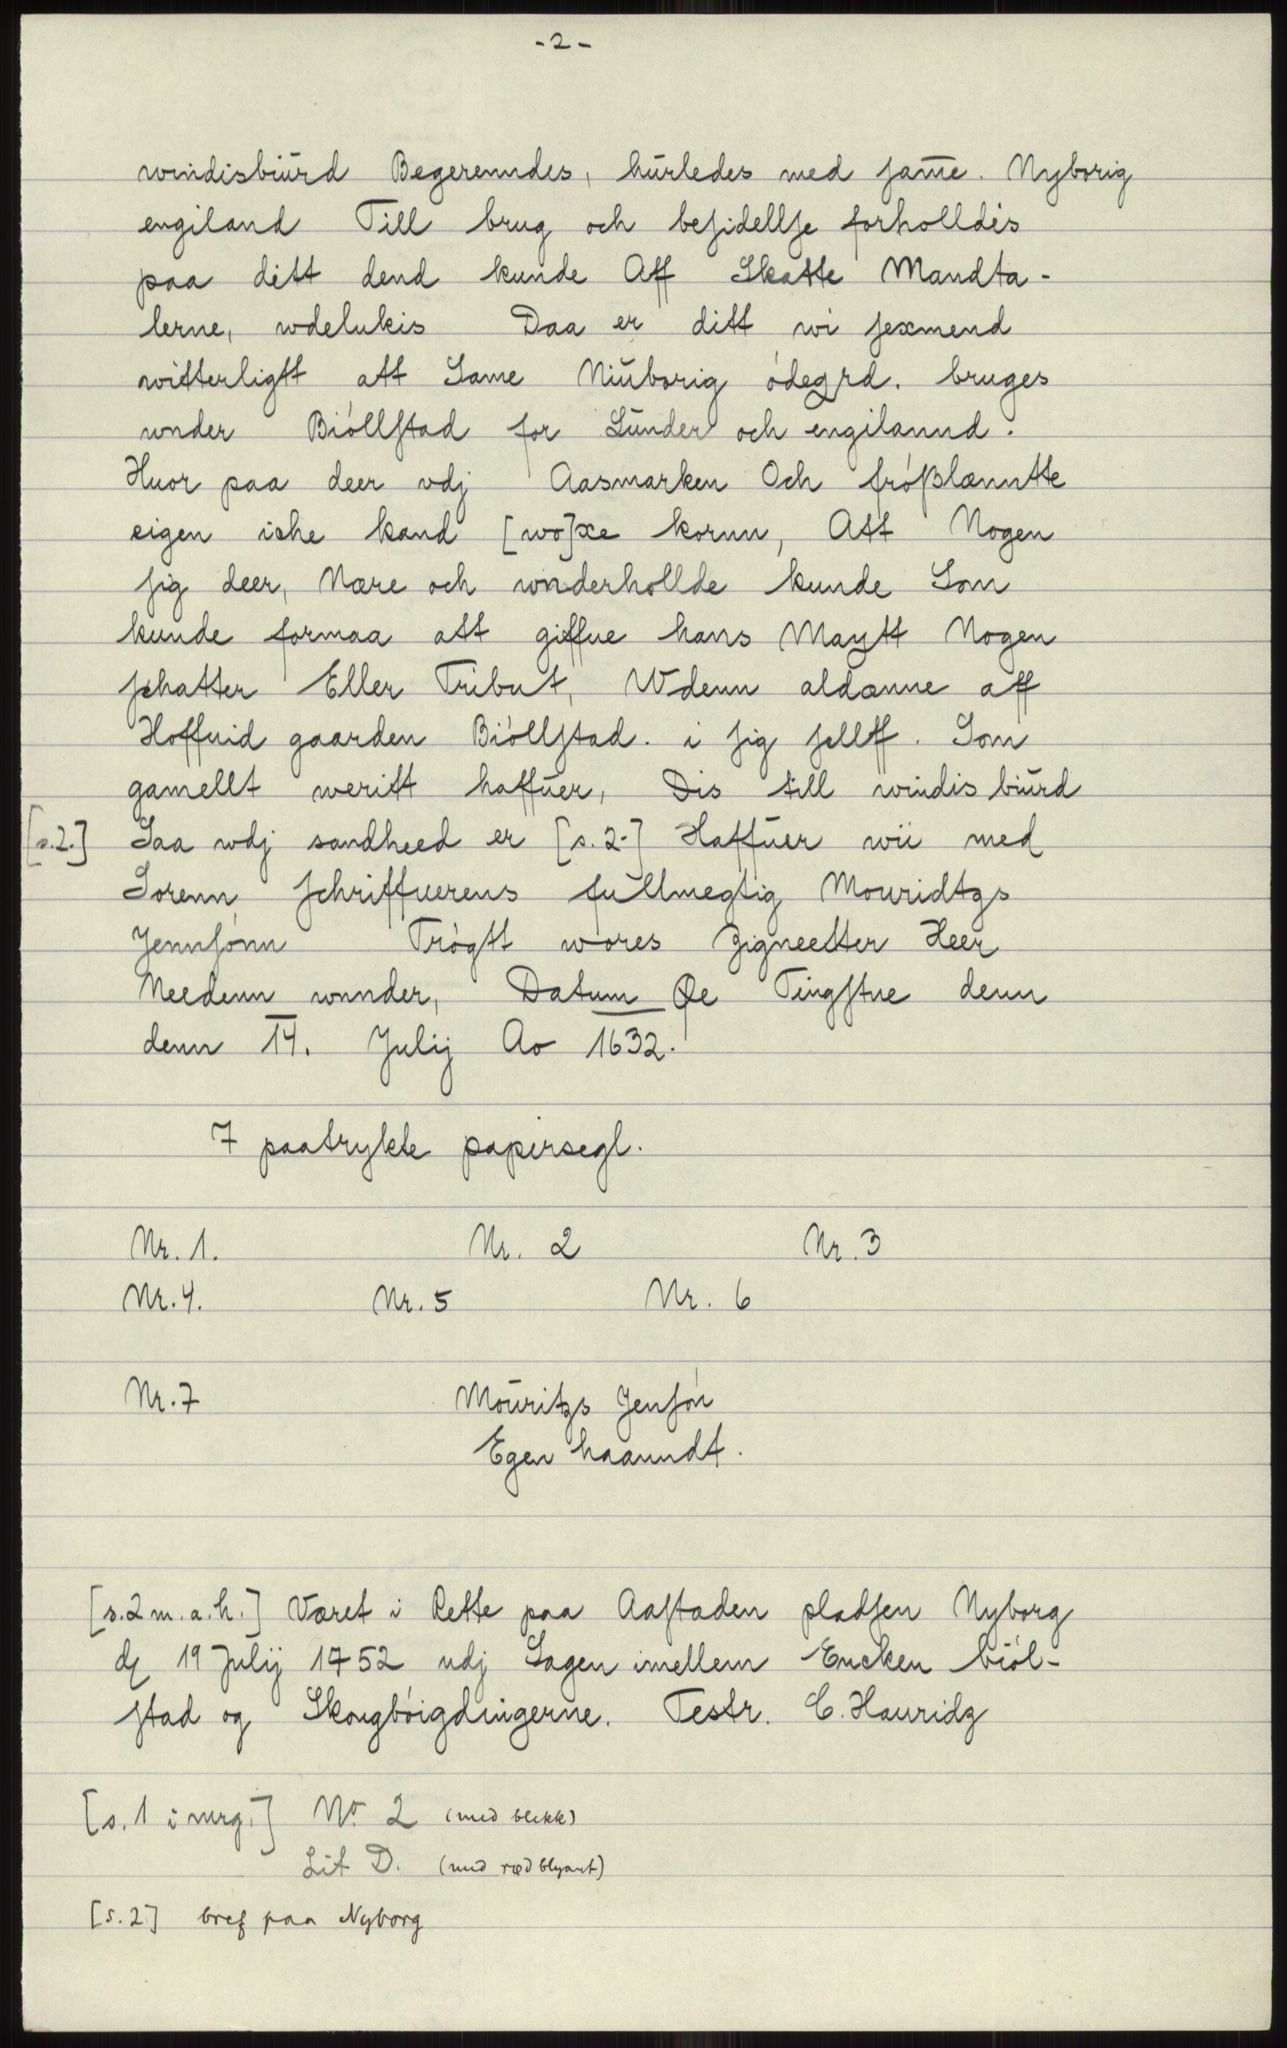 - 2 -
windisbiurd Begerenndes, hurledes med same. Nyborig
engiland Till brug och besidellse forholldes
paa ditt dend kunde Aff Skatte Mandta-
lerne, wdelukis Daa er ditt wi sexmend
witterligtt att Same Niuborig ödegrd. bruges
wnder Biöllstad for Sünder och engilannd.
Huor paa deer vdj Aasmarken Och fröszlænntte
eigen iche kand [wo]xe kornn, Att Nogen
sig deer, Nære och wnderhollde kunde Som
kunde formaa att giffue hans Maytt Nogen
schatter Eller Tribut, Wdenn aldænne aff
Hoffuid gaarden Biöllstad. i sig sellff. Som
gamellt weritt haffuer, Dis till windis biurd
[s.2.] Saa wdj sandheed er [s. 2.] Haffuer wii med
Sorenn schriffuerens fullmegtig Mouridtzs
Jennsönn Trögtt wores Zigneetter Heer
Needenn wnnder, Datum Øe Tingstue denn
denn 14. Julij Ao 1632.
7 paatrykte papirsegl.
Nr. 1. Nr. 2 Nr. 3
Nr. 4. Nr. 5 Nr. 6
Nr. 7 Mouritzs Jensön
Egen haanndt.
[s. 2 m. a. h.] Været i Rette paa Aastaden pladsen Nyborg
d 19 Julij 1752 udj Sagen imellem Encken biöl-
stad og Skougböigdingerne. Testr. C. Hauridz
[s. 1 i mrg.] No. 2 (med blekk)
Lit D. (med rød blyant)
[s. 2] bref paa Nyborg